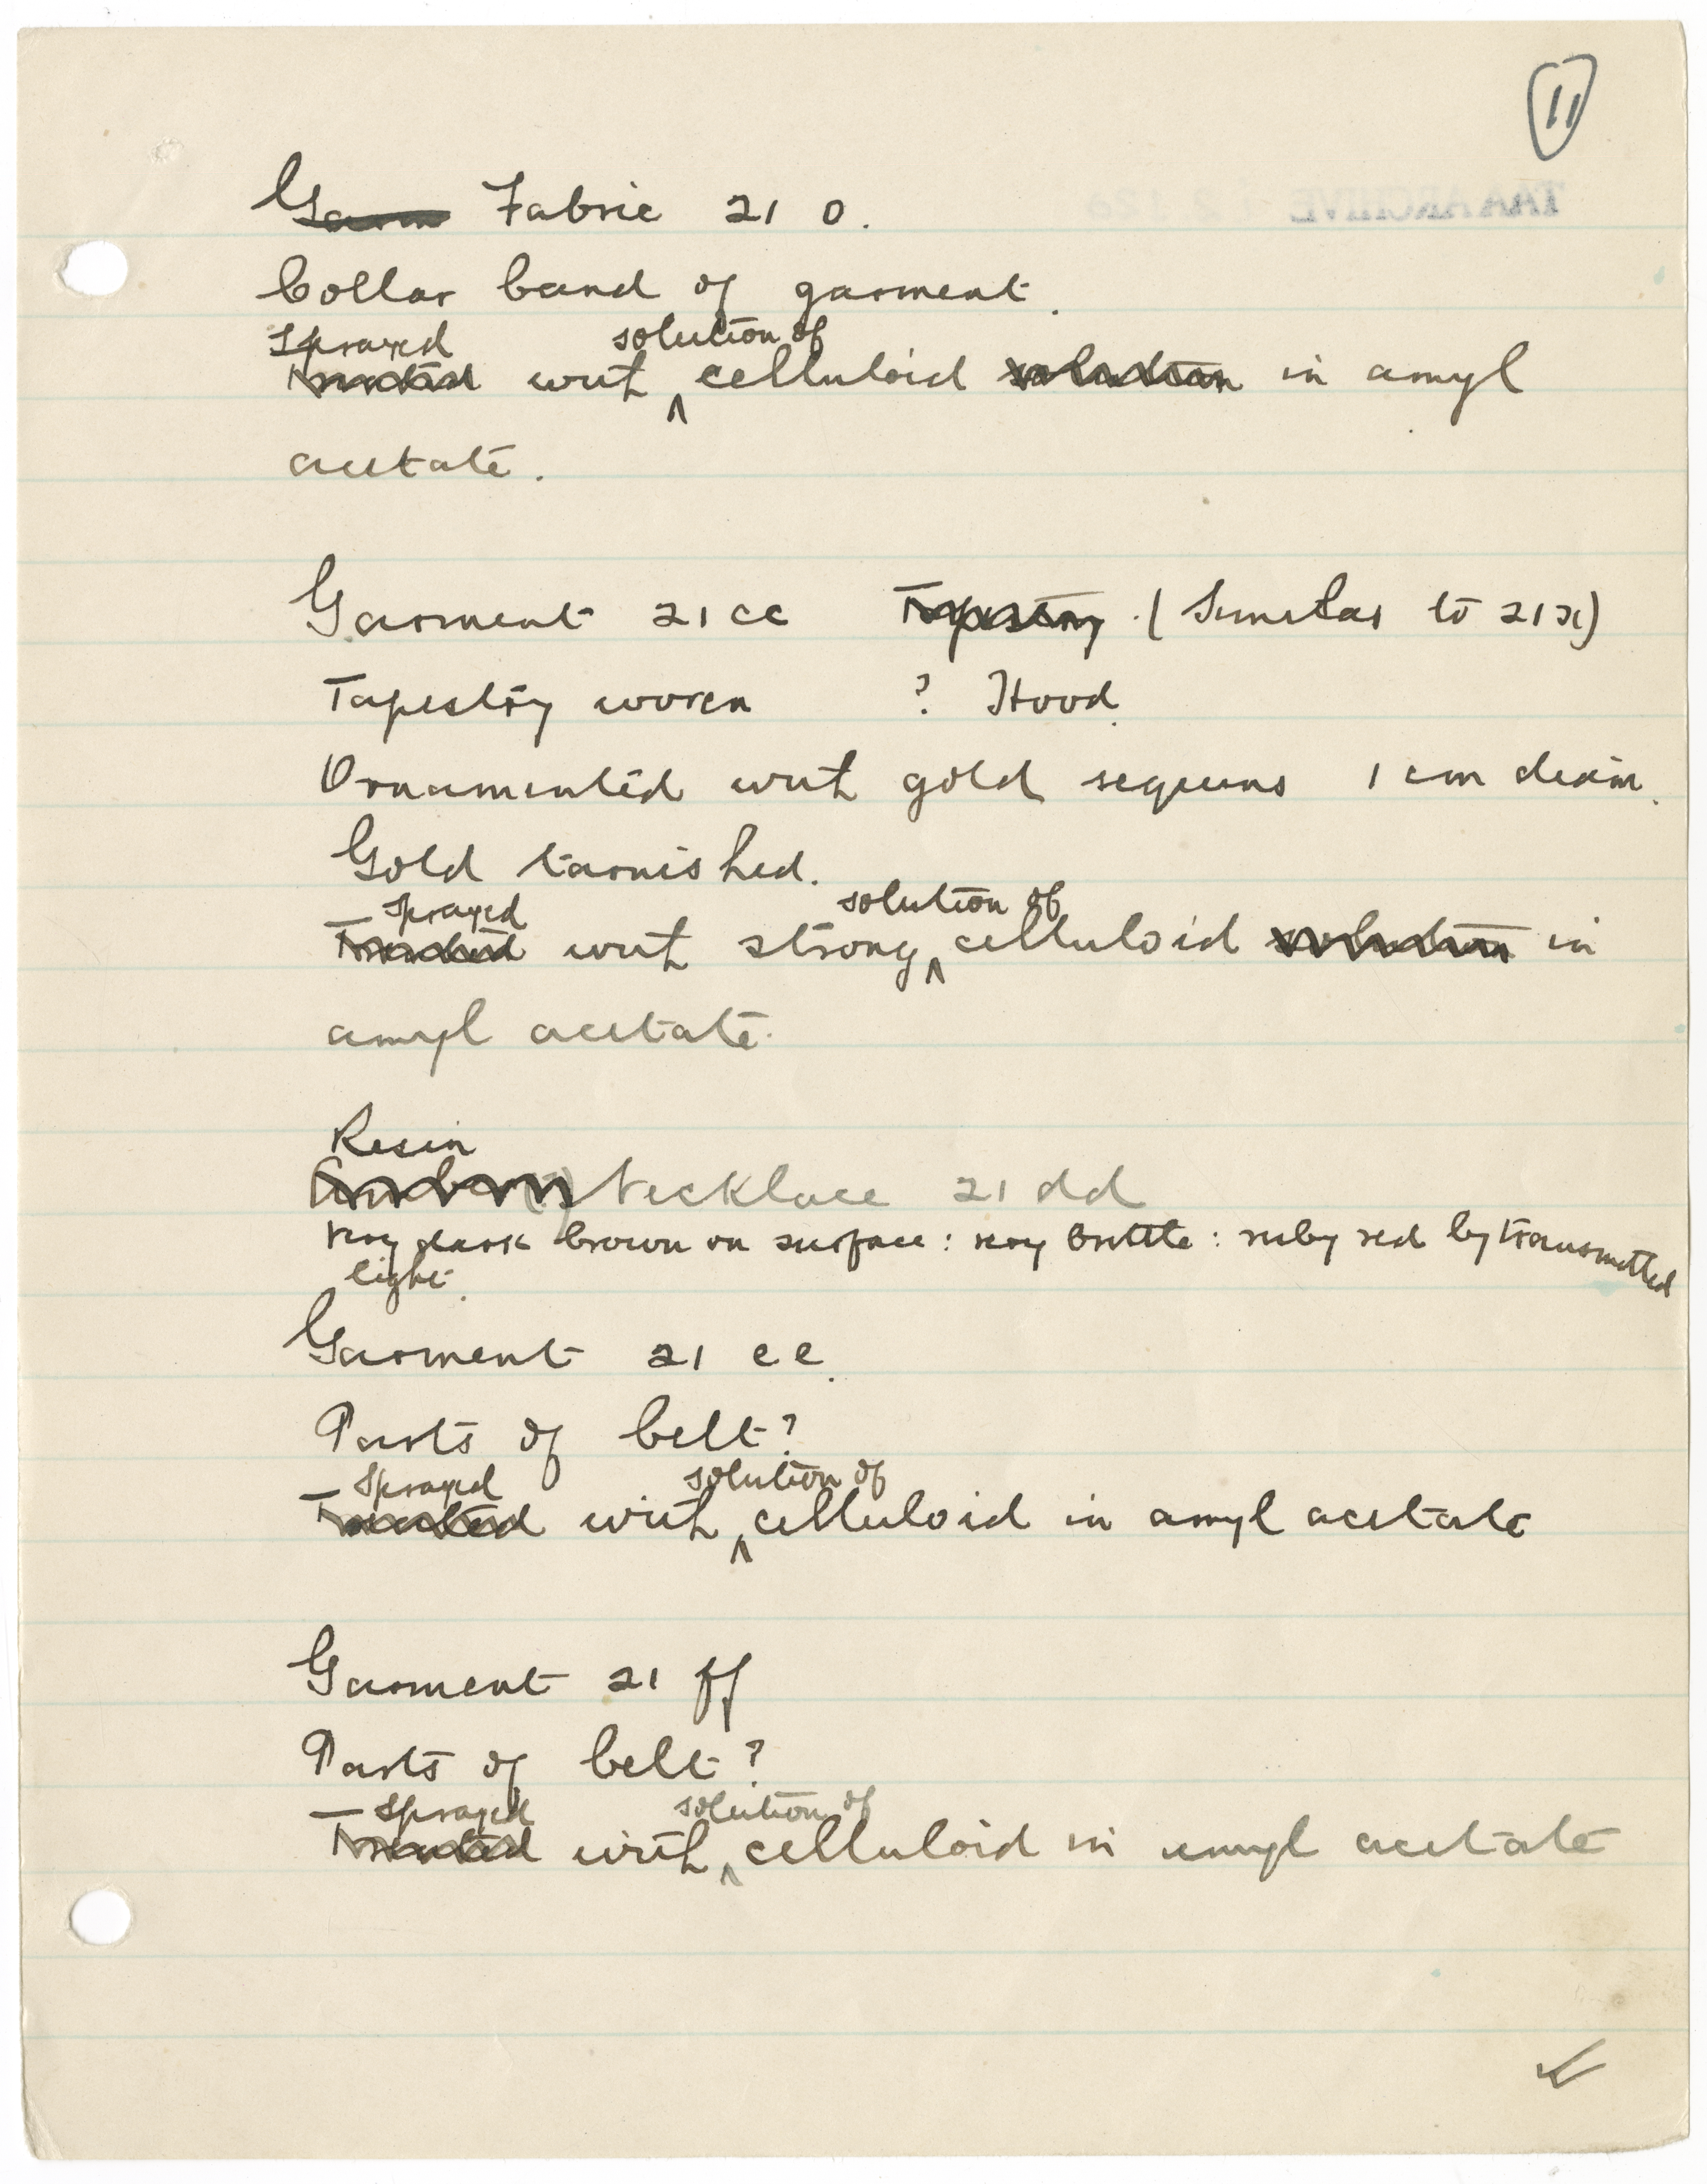 11
Garm Fabric 21 o.
Collar band of garment.
Sprayed solution of
Treated with ^ celluloid solution in amyl
acetate.
Garment 21 cc Tapestry. (Similar to 21x)
Tapestry woven ? Hood.
Ornamented with gold sequins 1 cm diam.
Gold tarnished.
Sprayed solution of
Treated with strong ^ celluloid solution in
amyl acetate.
Resin
Amber (?) Necklace 21 dd
Very dark brown on surface : very brittle : ruby red by transmitted
light.
Garment 21 ee.
Parts of belt?
Sprayed solution of
Treated with ^ celluloid in amyl acetate
Garment 21 ff
Parts of belt?
Sprayed solution of
Treated with ^ celluloid in amyl acetate